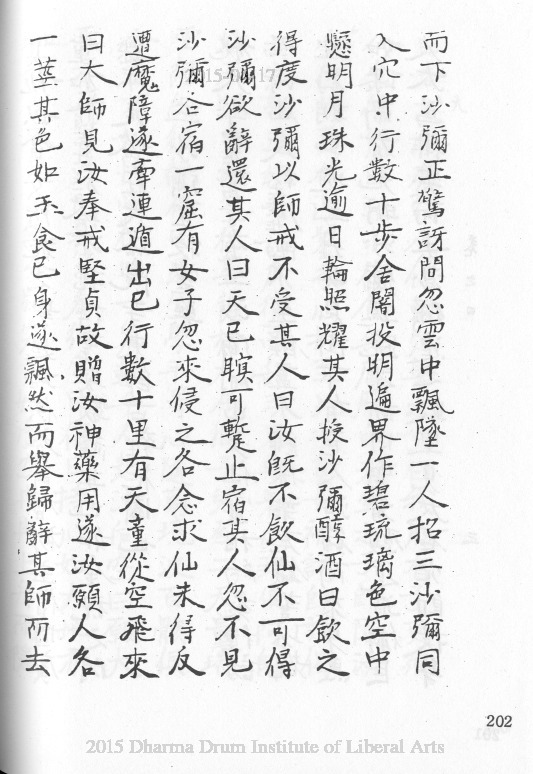 而下沙彌正驚訝間忽雲中飄墜一人招三沙彌同
入穴中行數十步舍闇投明遍界作碧琉璃色空中
懸明月珠光逾日輪照耀其人授沙彌醇酒曰飲之
得度沙彌以師戒不受其人曰汝既不飲仙不可得
沙彌欲辭還其人曰天已暝可蹔止宿其人忽不見
沙彌仝宿一窟有女子忽來侵之各念求仙未得反
遭魔障遂牽連遁出已行數十里有天童從空飛來
曰大師見汝奉戒堅貞故贈汝神藥用遂汝願人各
一莖其色如玉食已身遂飄然而舉歸辭其師而去
202
2015 Dharma Drum Institute of Liberal Arts